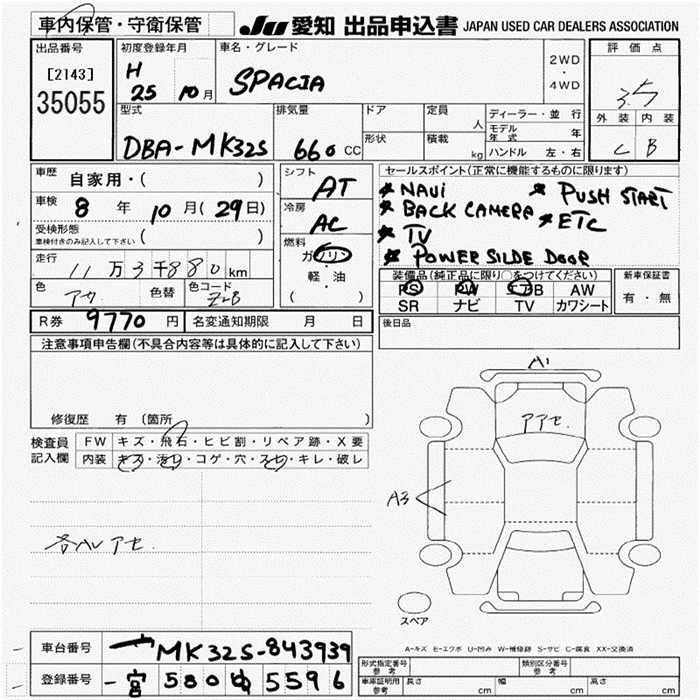 車内保管・守衛保管
JU 愛知 出品申込書 JAPAN USED CAR DEALERS ASSOCIATION
出品番号
[2143]
35055
初度登録年月
H
25 10月
車名・グレード
SPACIA
2WD
・
4WD
評価点
3.5
外装 内装
C B
型式
DBA-MK32S
排気量
660 CC
ドア
形状
定員
人
積載
kg
ディーラー・並行
モデル年式 年
ハンドル 左・右
車歴
自家用・( )
車検
8 年 10 月(29日)
受検形態
車検付きのみ記入して下さい ( )
走行
11万3千880km
色
アカ
色替
色コード
シフト
AT
冷房
AC
燃料
ガソリン
軽・油
( )
セールスポイント(正常に機能するものに限ります)
★ NAVI ★ PUSH START
★ BACK CAMERA ★ ETC
★ TV
★ POWER SLIDE DOOR
装備品(純正品に限り○をつけてください)
PS PW エアB AW
SR ナビ TV カワシート
新車保証書
有・無
R券 9770 円 名変通知期限 月 日
後日品
注意事項申告欄(不具合内容等は具体的に記入して下さい)
修復歴 有 〔箇所 〕
検査員記入欄
FW キズ・飛石・ヒビ割・リペア跡・X要
内装 キズ・汚れ・コゲ・穴・スレ・キレ・破レ
A1
アアセ
A3
各ハレ アセ
スペア
A-キズ E-エクボ U-凹み W-補修跡 S-サビ C-腐食 XX-交換済
車台番号 MK32S-843939
登録番号 一宮 580 ゆ 5596
形式指定番号 参考
類別区分番号 参考
車庫証明用 参考 長さ cm 幅 cm 高さ cm